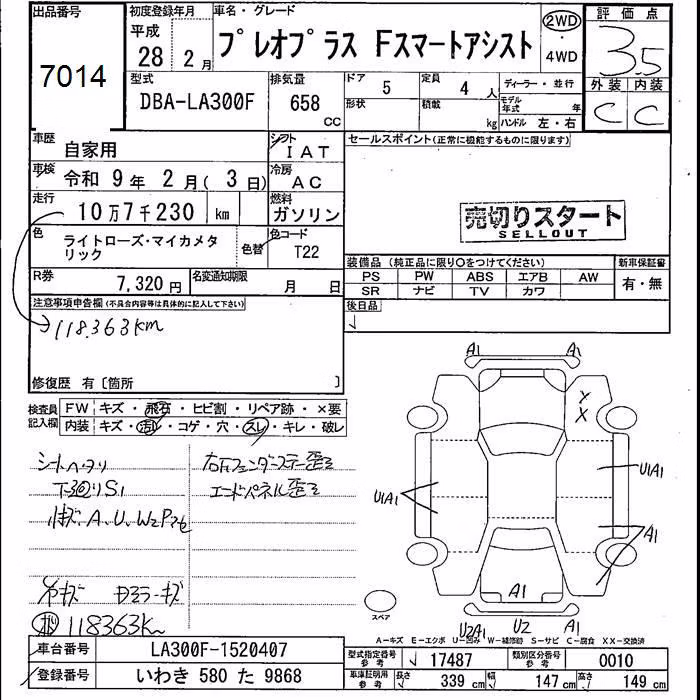 出品番号 初度登録年月 車名・グレード 評価点
7014 平成 28 2月 プレオプラス Fスマートアシスト 2WD・4WD 3.5
型式 排気量 ドア 定員 ディーラー・並行 外装 内装
DBA-LA300F 658 CC 5 4人 形状 積載 kg モデル年式 年 ハンドル 左・右 C C
車歴 自家用 シフト IAT セールスポイント(正常に機能するものに限ります)
車検 令和 9年 2月(3日) 冷房 AC
走行 10万7千230 km 燃料 ガソリン
売切りスタート
SELLOUT
色 ライトローズ・マイカメタリック 色替 色コード T22
装備品(純正品に限り○をつけてください) 新車保証書
R券 7,320円 名変通知期限 月 日
PS PW ABS エアB AW 有・無
SR ナビ TV カワ
注意事項申告欄(不具合内容等は具体的に記入して下さい) 後日品
→118.363km
修復歴 有〔箇所 〕
検査員記入欄 FW キズ・飛石・ヒビ割・リペア跡・×要
内装 キズ・汚レ・コゲ・穴・スレ・キレ・破レ
シートヘタリ
エンドパネル歪ミ
A1 A1
X
X
U1A1
U1A1
A1
A1
U2A1 U2 A1
スペア
118363Km
A−キズ E−エクボ U−凹み W−補修跡 S−サビ C−腐食 XX−交換済
車台番号 LA300F-1520407 型式指定番号 参考 17487 類別区分番号 参考 0010
登録番号 いわき 580 た 9868 車庫証明用 参考 長さ 339 cm 幅 147 cm 高さ 149 cm